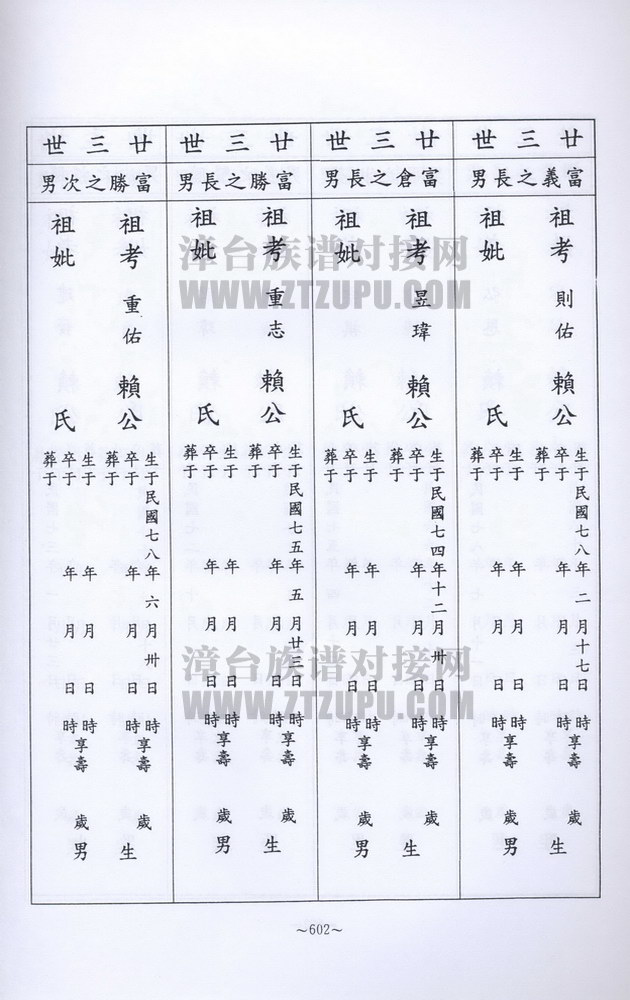 廿三世
富義之長男
祖考 則佑 賴公
生于民國七八年二月十七日時
卒于 年 月 日時享壽 歲
葬于
生
祖妣 氏
生于 年 月 日時
卒于 年 月 日時享壽 歲
葬于
男
廿三世
富倉之長男
祖考 昱瑋 賴公
生于民國七四年十二月卅日時
卒于 年 月 日時享壽 歲
葬于
生
祖妣 氏
生于 年 月 日時
卒于 年 月 日時享壽 歲
葬于
男
廿三世
富勝之長男
祖考 重志 賴公
生于民國七五年五月廿三日時
卒于 年 月 日時享壽 歲
葬于
生
祖妣 氏
生于 年 月 日時
卒于 年 月 日時享壽 歲
葬于
男
廿三世
富勝之次男
祖考 重佑 賴公
生于民國七八年六月卅日時
卒于 年 月 日時享壽 歲
葬于
生
祖妣 氏
生于 年 月 日時
卒于 年 月 日時享壽 歲
葬于
男
~602~
漳台族谱对接网
WWW.ZTZUPU.COM
漳台族谱对接网
WWW.ZTZUPU.COM